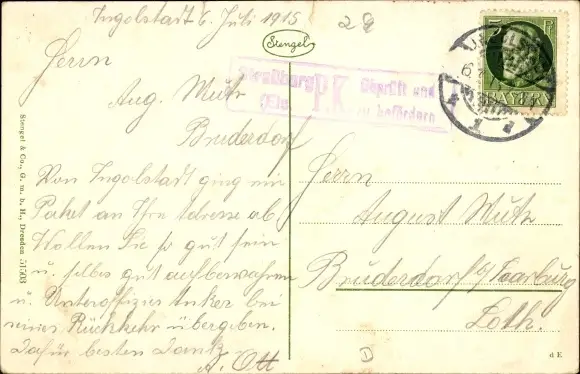 Ingolstadt 6. Juli 1915
29
Stengel
5 Pf
BAYERN
Straßburg
(Els
P.K.
Geprüft und
zu befördern
Herrn
Aug. Muth
Bruderdorf
Von Ingolstadt ging ein
Paket an Ihre Adresse ab.
Wollen Sie so gut sein
u. selbes gut aufbewahren
u. Unteroffizier Anker bei
seiner Rückkehr übergeben.
Dafür besten Dank
A. Ott
Herrn
August Muth
Bruderdorf b/ Saarburg
Loth.
Stengel & Co., G. m. b. H., Dresden 51503
d E